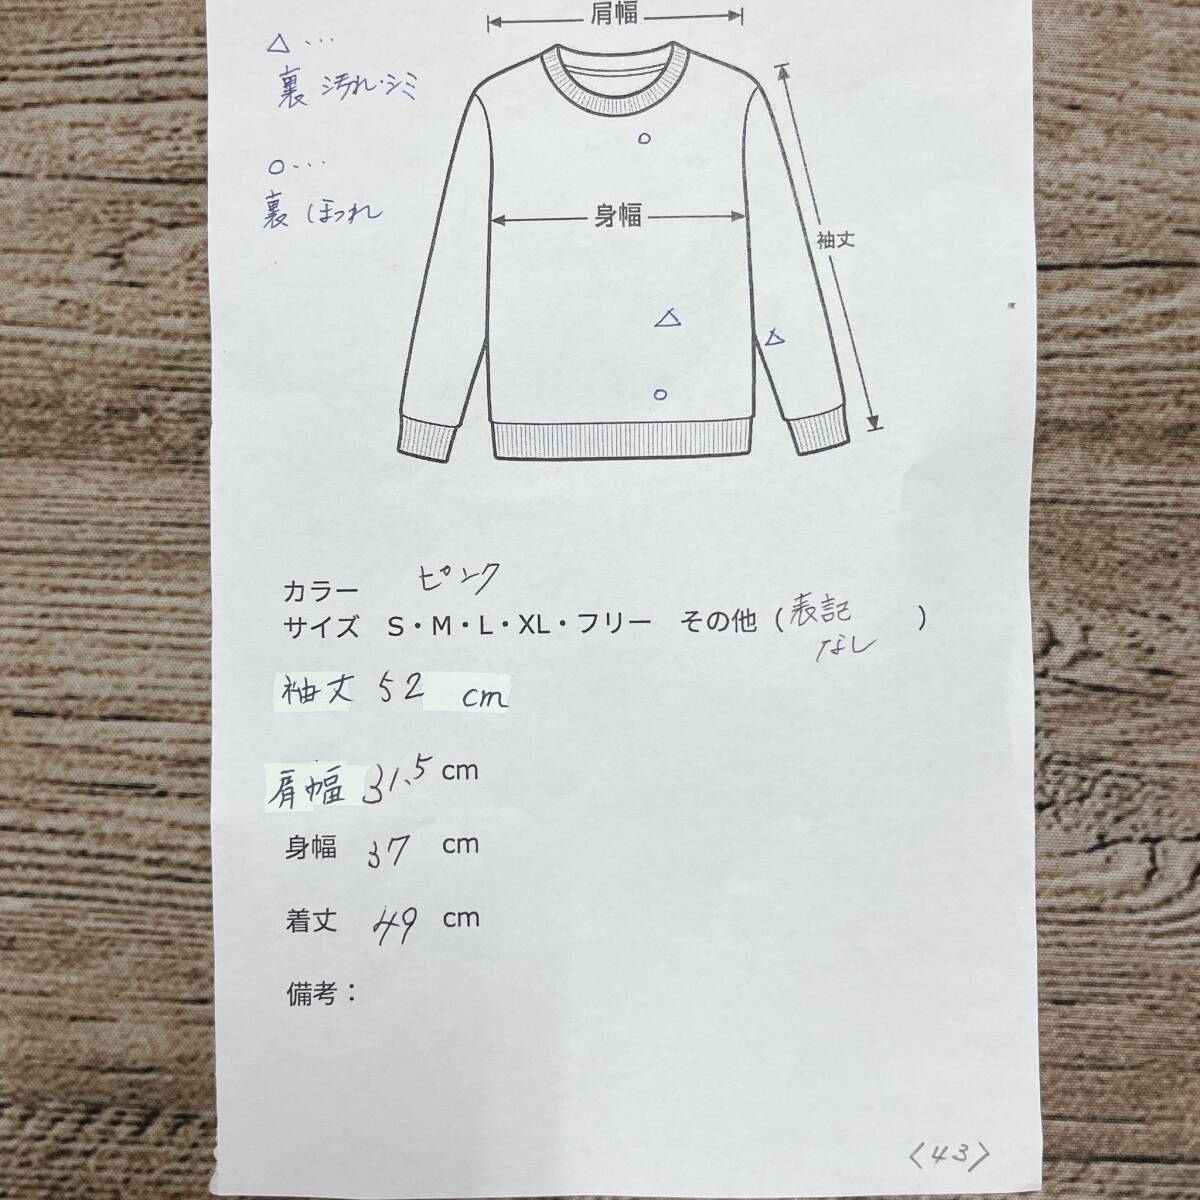 肩幅
△…
裏 汚れ・シミ
○…
裏 ほつれ
身幅
袖丈
カラー ピンク
サイズ S・M・L・XL・フリー その他（表記なし）
袖丈 52 cm
肩幅 31.5 cm
身幅 37 cm
着丈 49 cm
備考：
〈43〉